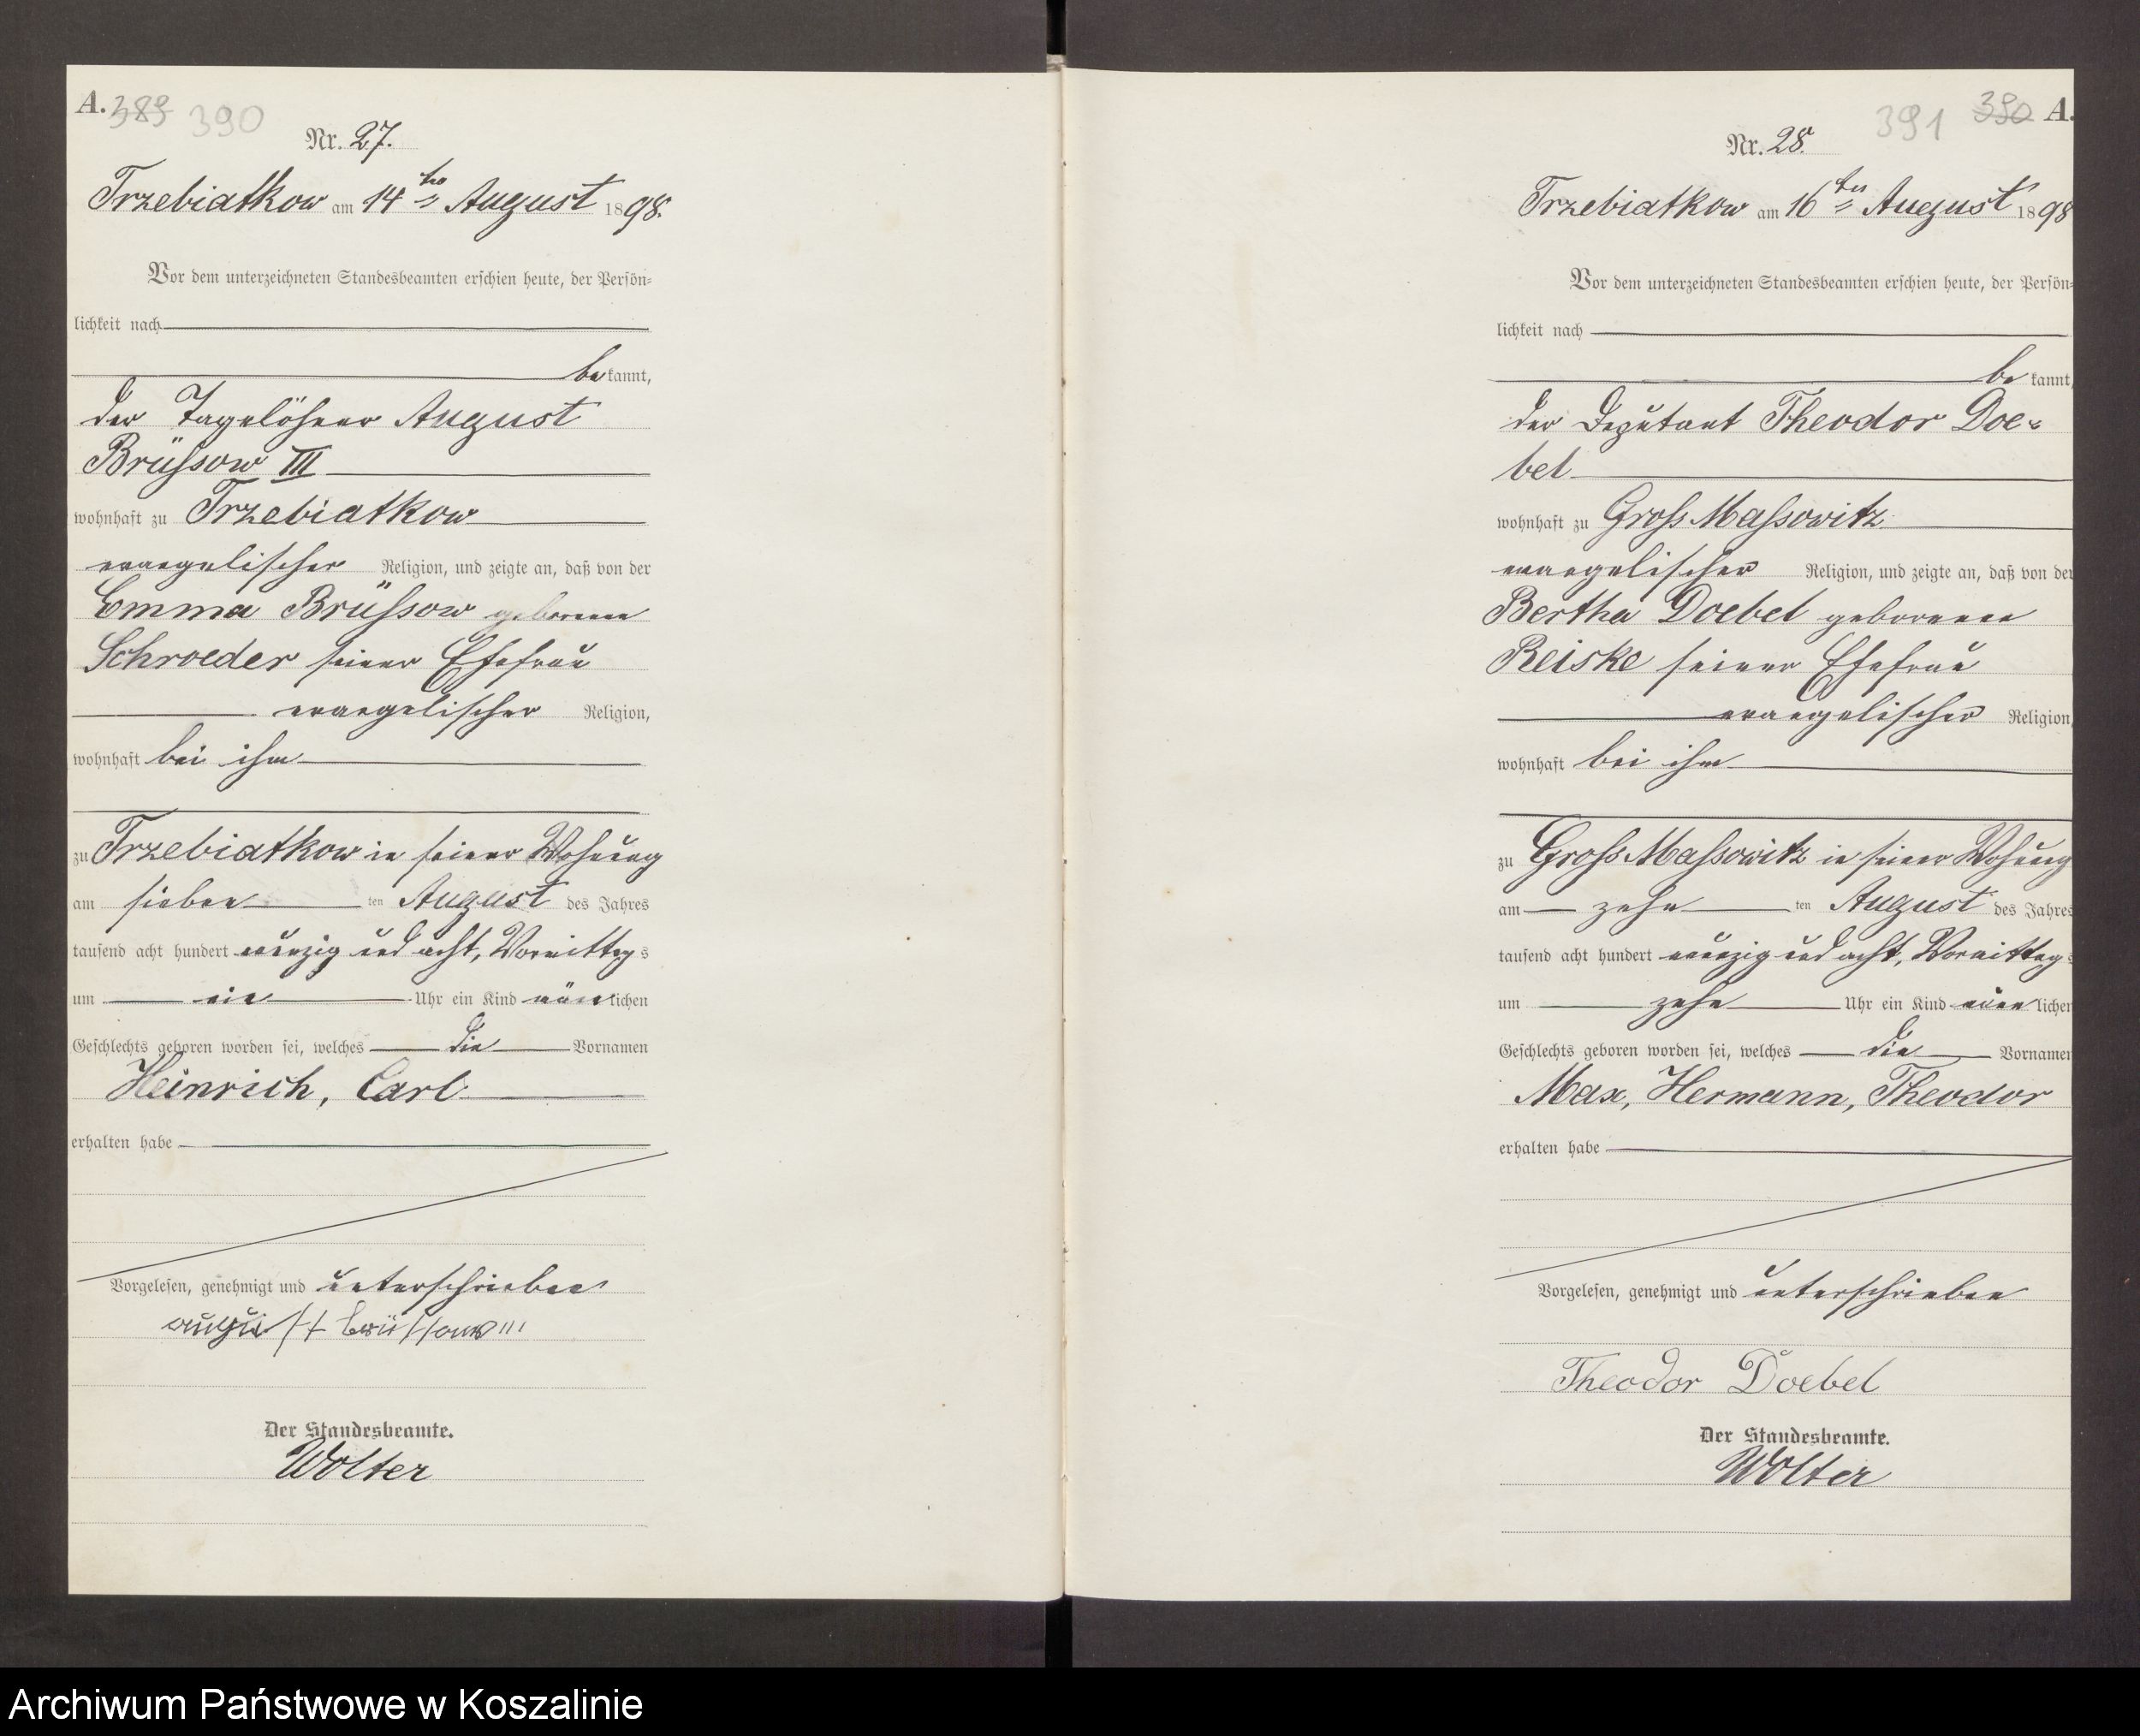 A. 389 390
Nr. 27.
Trzebiatkow am 14ten August 1898.
Vor dem unterzeichneten Standesbeamten erschien heute, der Persön-
lichkeit nach
bekannt,
der Tagelöhner August
Brüssow III
wohnhaft zu Trzebiatkow
evangelischer Religion, und zeigte an, daß von der
Emma Brüssow geborenen
Schroeder seiner Ehefrau
evangelischer Religion,
wohnhaft bei ihm
zu Trzebiatkow in seiner Wohnung
am sieben ten August des Jahres
tausend acht hundert neunzig und acht, Vormittags
um ein Uhr ein Kind männlichen
Geschlechts geboren worden sei, welches die Vornamen
Heinrich, Carl
erhalten habe
Vorgelesen, genehmigt und unterschrieben
august brüssow III
Der Standesbeamte.
Wolter
391 390 A.
Nr. 28.
Trzebiatkow am 16ten August 1898
Vor dem unterzeichneten Standesbeamten erschien heute, der Persön-
lichkeit nach
bekannt,
der Deputant Theodor Doe-
bel
wohnhaft zu Gross Massowitz
evangelischer Religion, und zeigte an, daß von der
Bertha Doebel geborenen
Reiske seiner Ehefrau
evangelischer Religion,
wohnhaft bei ihm
zu Gross Massowitz in seiner Wohnung
am zehn ten August des Jahres
tausend acht hundert neunzig und acht, Vormittags
um zehn Uhr ein Kind männlichen
Geschlechts geboren worden sei, welches die Vornamen
Max, Hermann, Theodor
erhalten habe
Vorgelesen, genehmigt und unterschrieben
Theodor Doebel
Der Standesbeamte.
Wolter
Archiwum Państwowe w Koszalinie